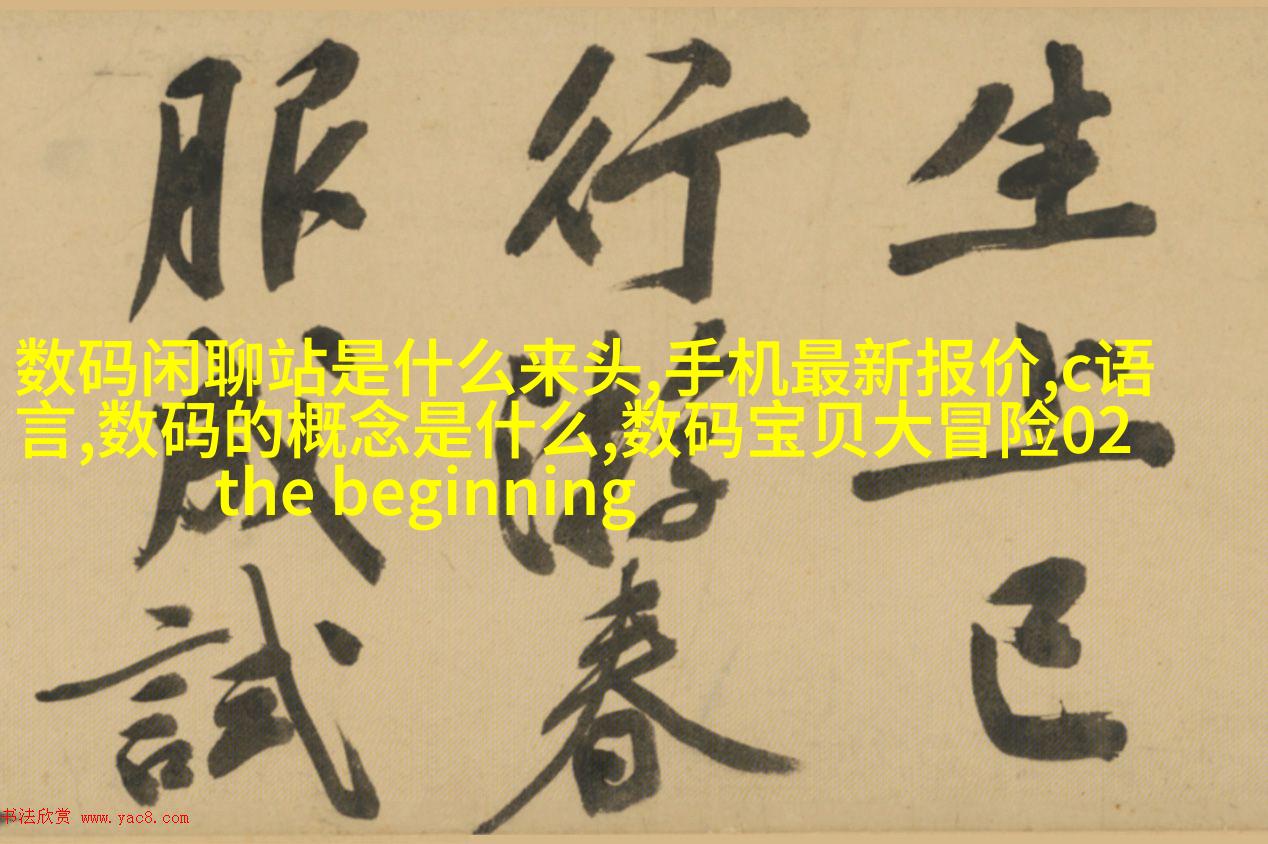 生上巳
行游春
服成試
数码闲聊站是什么来头,手机最新报价,c语
言,数码的概念是什么,数码宝贝大冒险02
the beginning
书法欣赏 www.yac8.com